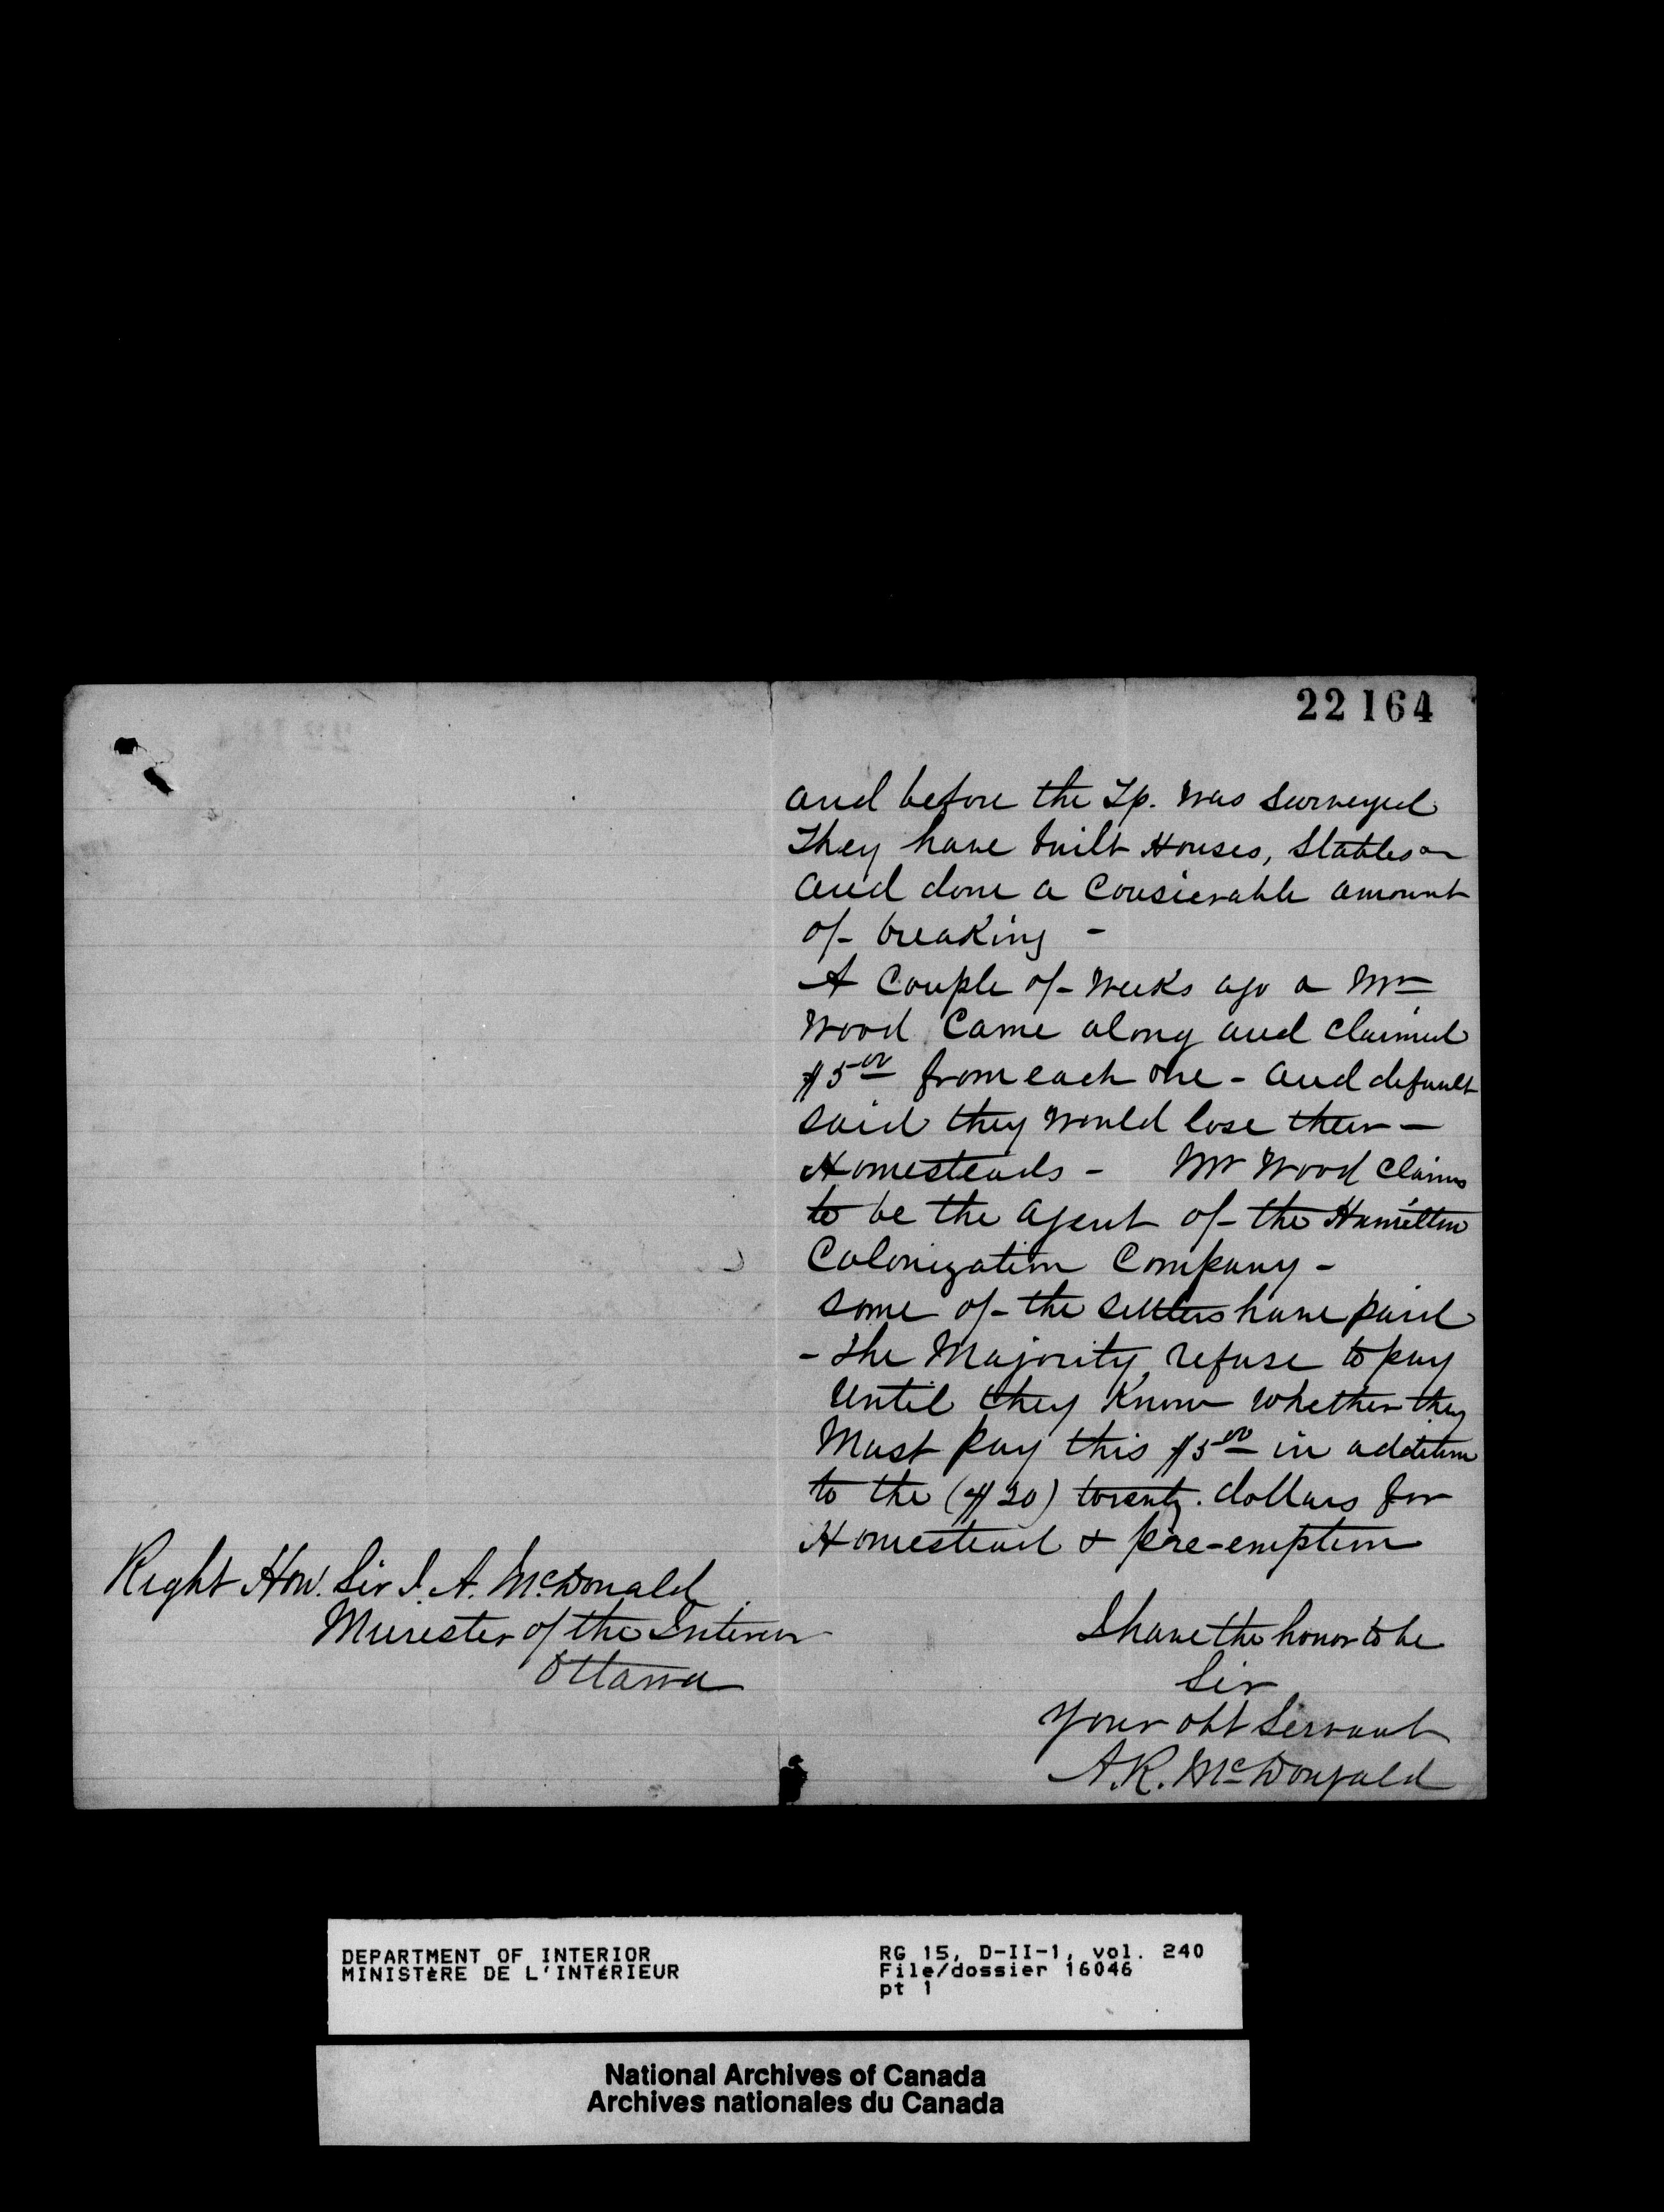 22164
and before the Tp. was surveyed
They have built Houses, Stables
and done a Consierable amount
of breaking -
A Couple of weeks ago a Mr
Wood Came along and claimed
$5.00 from each one - and default
said they would lose their -
Homesteads - Mr Wood claims
to be the agent of the Hamilton
Colonization Company -
Some of the settlers have paid
- The Majority refuse to pay
Until they Know whether they
Must pay this $5.00 in addition
to the ($20) twenty dollars for
Homestead & pre-emption
I have the honor to be
Sir
Your obt Servant
A.R. McDougald
Right Hon. Sir J. A. McDonald
Minister of the Interior
Ottawa
DEPARTMENT OF INTERIOR
MINISTÈRE DE L'INTÉRIEUR
RG 15, D-II-1, vol. 240
File/dossier 16046
pt 1
National Archives of Canada
Archives nationales du Canada